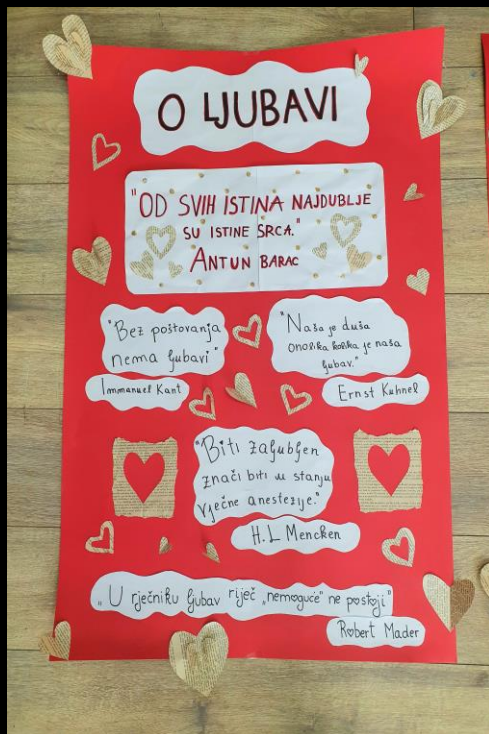 O LJUBAVI
"OD SVIH ISTINA NAJDUBLJE
SU ISTINE SRCA."
ANTUN BARAC
"Bez poštovanja
nema ljubavi"
Immanuel Kant
"Naša je duša
onolika kolika je naša
ljubav."
Ernst Kuhnel
"Biti zaljubljen
znači biti u stanju
vječne anestezije."
H.L Mencken
„U rječniku ljubav riječ „nemoguće" ne postoji"
Robert Mader